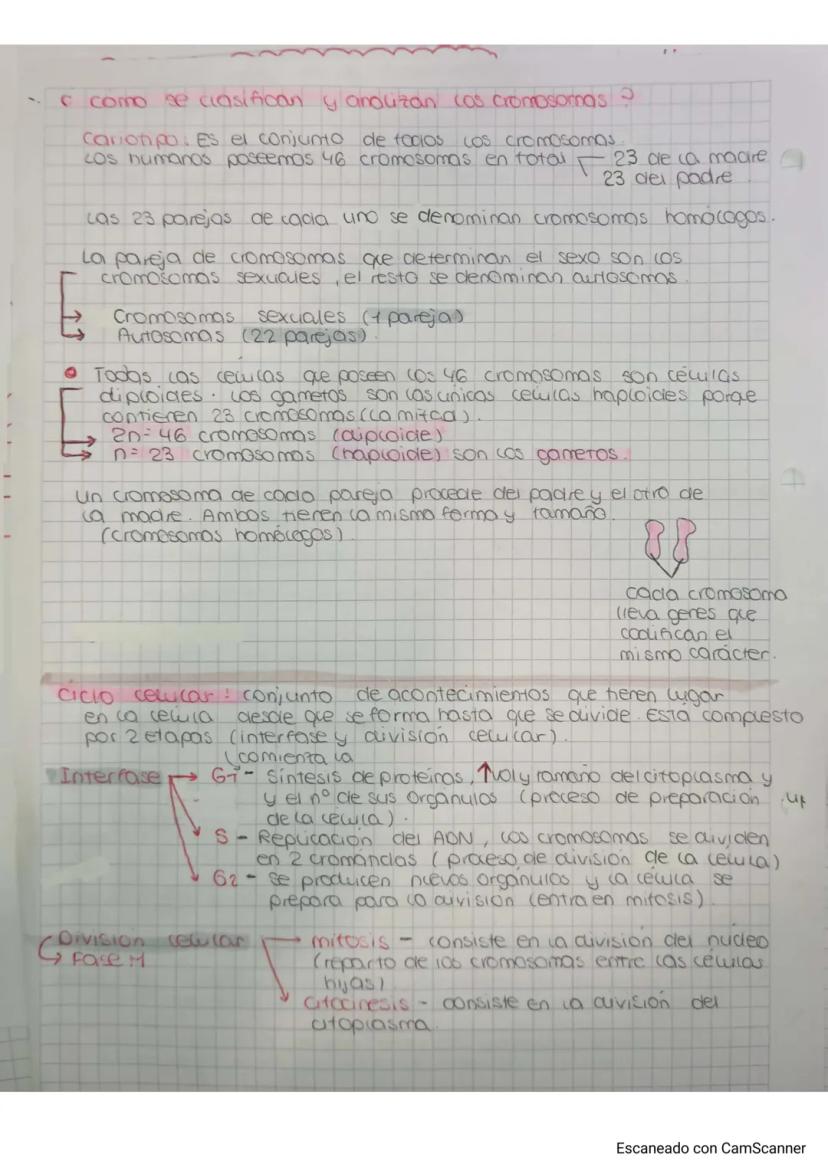 ¿ Como se clasifican y analizan los cromosomas ?
Cariotipo: Es el conjunto de todos los cromosomas.
Los humanos poseemos 46 cromosomas en total 23 de la madre
23 del padre
Las 23 parejas de cada uno se denominan cromosomas homólogos.
La pareja de cromosomas que determinan el sexo son los
cromosomas sexuales, el resto se denominan autosomas.
Cromosomas sexuales (1 pareja)
Autosomas (22 parejas).
Todas las células que poseen los 46 cromosomas son células
diploides. Los gametos son las únicas células haploides porque
contienen 23 cromosomas (la mitad).
2n = 46 cromosomas (diploide)
n = 23 cromosomas (haploide) son los gametos.
Un cromosoma de cada pareja procede del padre y el otro de
la madre. Ambos tienen la misma forma y tamaño.
(cromosomas homólogos)
cada cromosoma
lleva genes que
codifican el
mismo carácter.
Ciclo celular: conjunto de acontecimientos que tienen lugar
en la célula desde que se forma hasta que se divide. Está compuesto
por 2 etapas (interfase y división celular).
(comienza la
Interfase → G1 - Síntesis de proteínas, ↑ vol y tamaño del citoplasma y
y el nº de sus orgánulos (proceso de preparación
de la célula).
S - Replicación del ADN, los cromosomas se dividen
en 2 crománcias (proceso de división de la célula)
G2 - se producen nuevos orgánulos y la célula se
prepara para la división (entra en mitosis).
División celular → mitosis - consiste en la división del núcleo
↳ Fase M (reparto de los cromosomas entre las células
hijas)
Citocinesis - consiste en la división del
citoplasma.
Escaneado con CamScanner